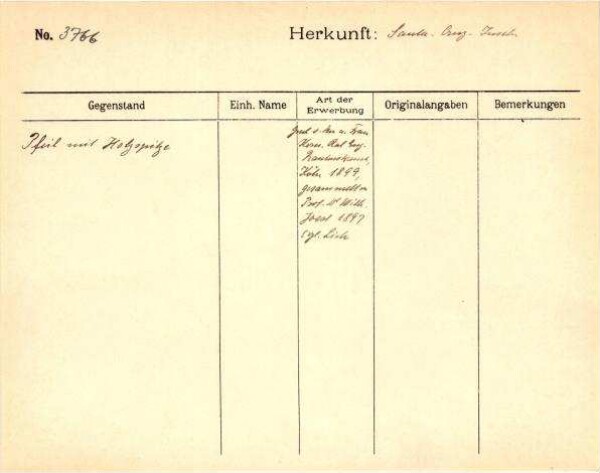 No. 3766
Herkunft: Santa. Cruz. Inseln
Gegenstand
Einh. Name
Art der Erwerbung
Originalangaben
Bemerkungen
Pfeil mit Holzspitze
Gesch. d. Herrn u. Frau
Kom. Rat Eug.
Rautenstrauch,
Köln 1899,
gesammelt v.
Prof. Dr Wilh.
Joest 1897